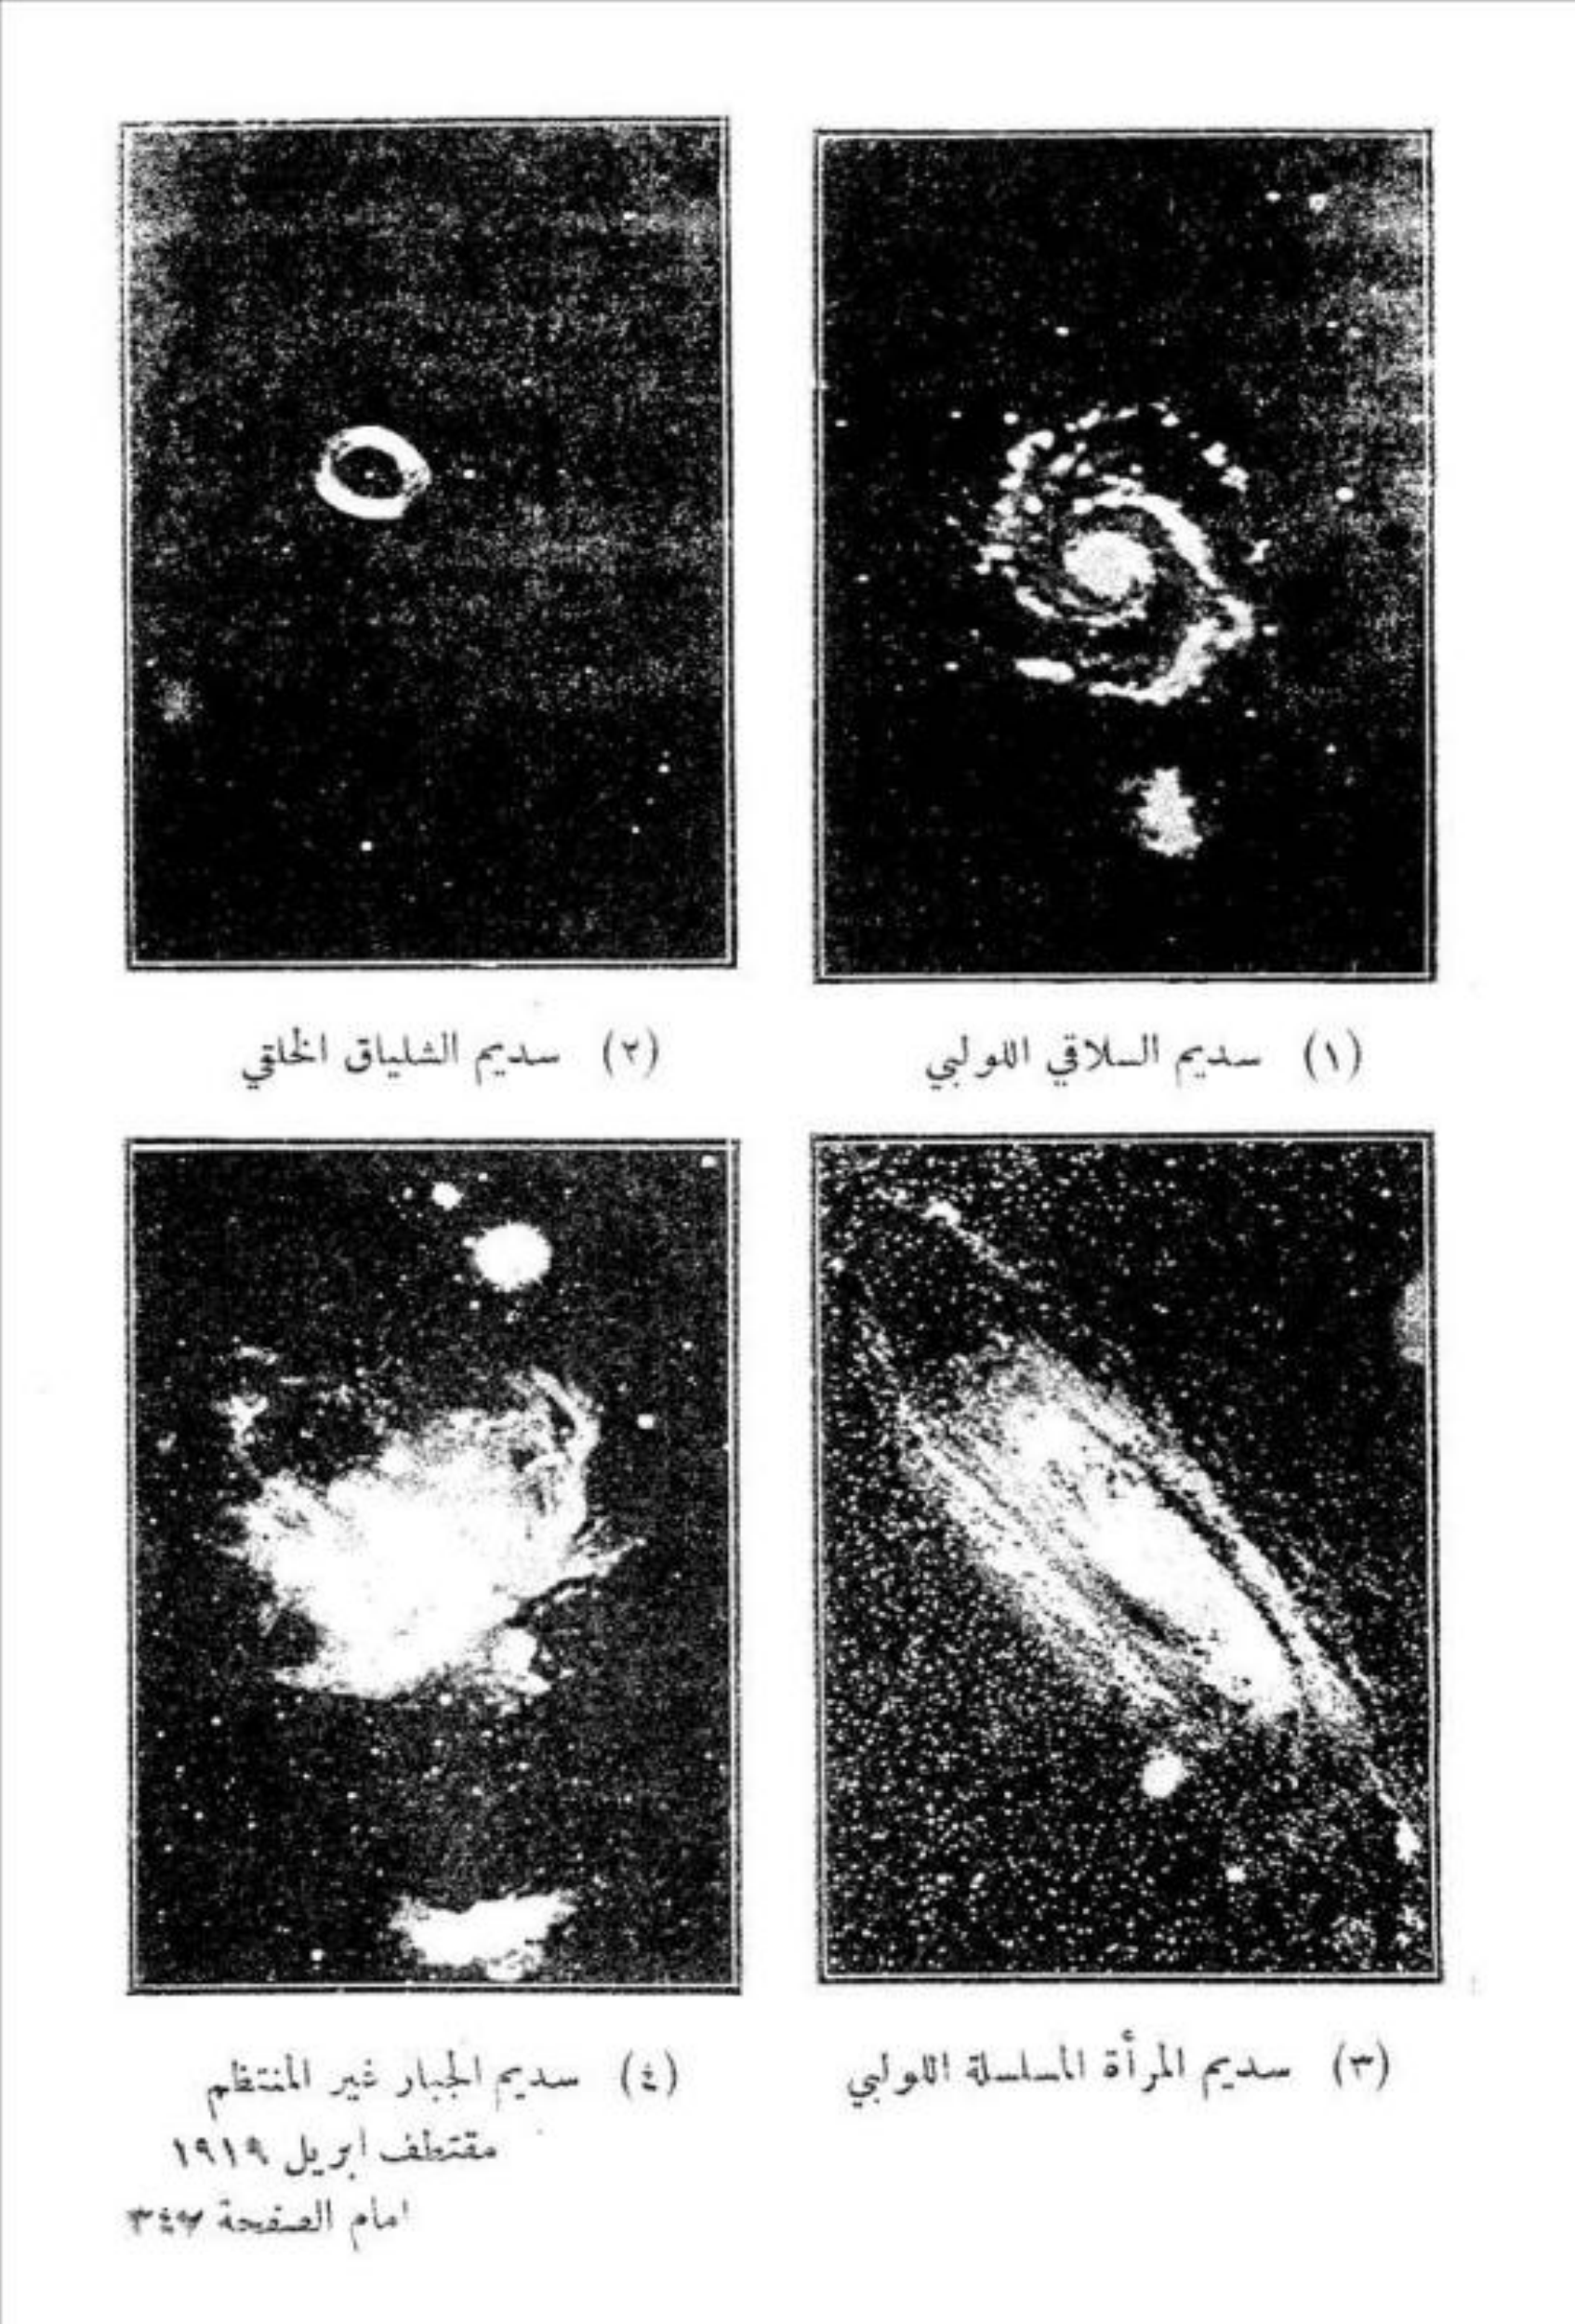 (١) سديم السلاقي اللولبي
(٢) سديم الشلياق الحلقي
(٣) سديم المرأة المسلسلة اللولبي
(٤) سديم الجبار غير المنتظم
مقتطف ابريل ١٩١٩
امام الصفحة